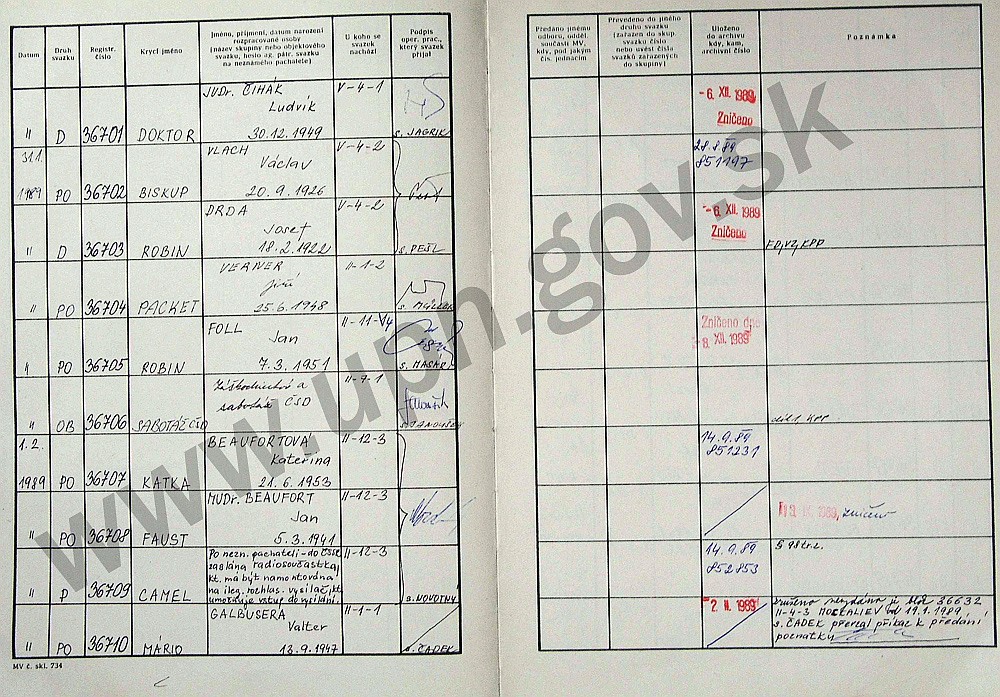 Datum
Druh svazku
Registr. číslo
Krycí jméno
Jméno, příjmení, datum narození rozpracované osoby (název skupiny nebo objektového svazku, heslo ag. pátr. svazku na neznámého pachatele)
U koho se svazek nachází
Podpis oper. prac., který svazek přijal
Předáno jinému odboru, odděl. součásti MV, kdy, pod jakým čís. jednacím
Převedeno do jiného druhu svazku (zařazen do skup. svazku číslo nebo uvést čísla svazků zařazených do skupiny)
Uloženo do archivu kdy, kam, archivní číslo
Poznámka
JUDr. ČIHÁK V-4-1
Ludvík
" D 36701 DOKTOR 30.12.1949 s. JAGRIK
- 6. XII. 1989
Zničeno
31.1. VLACH V-4-2
Václav
1989 PO 36702 BISKUP 20.9.1926
28.8.89
851197
DRDA V-4-2
Josef
" D 36703 ROBIN 18.2.1922 s. PEŠL
- 6. XII. 1989
Zničeno
VERNER II-1-2
Jiří
" PO 36704 PACKET 25.6.1948
FOLL II-11-14
Jan
" PO 36705 ROBIN 7.3.1951 s. MASÁR
Zničeno dne
- 8. XII. 1989
Záškodnictví a II-9-1
sabotáž ČSD
" OB 36706 SABOTÁŽ ČSD s. JANOUŠEK
1.2. BEAUFORTOVÁ II-12-3
Kateřina
1989 PO 36707 KATKA 21.6.1953
14.9.89
851231
MUDr. BEAUFORT II-12-3
Jan
" PO 36708 FAUST 5.3.1941
1989, zničen
Po nezn. pachateli - do ČSSR II-12-3
zaslána radiosoučástka,
kt. má být namontována
na ileg. rozhlas. vysílač, kt.
umožňuje vstup do vysílání
" P 36709 CAMEL s. NOVOTNÝ
14.9.89 § 98 tr.z.
852853
GALBUSERA II-1-1
Valter
" PO 36710 MÁRIO 13.9.1947 s. ČADEK
2. II. 1989
36632
II-4-3 od 19.1.1989,
s. ČADEK převzal příkaz k předání
MV č. skl. 734
www.upn.gov.sk